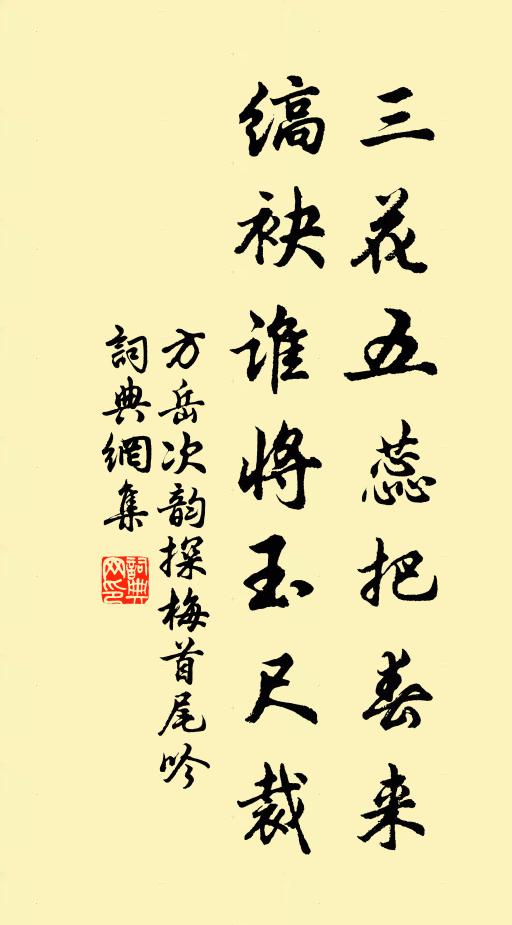 三花五蕊把春来
缟袂谁将玉尺裁
方岳次韵探梅首尾吟
詞典網集
詞典网印